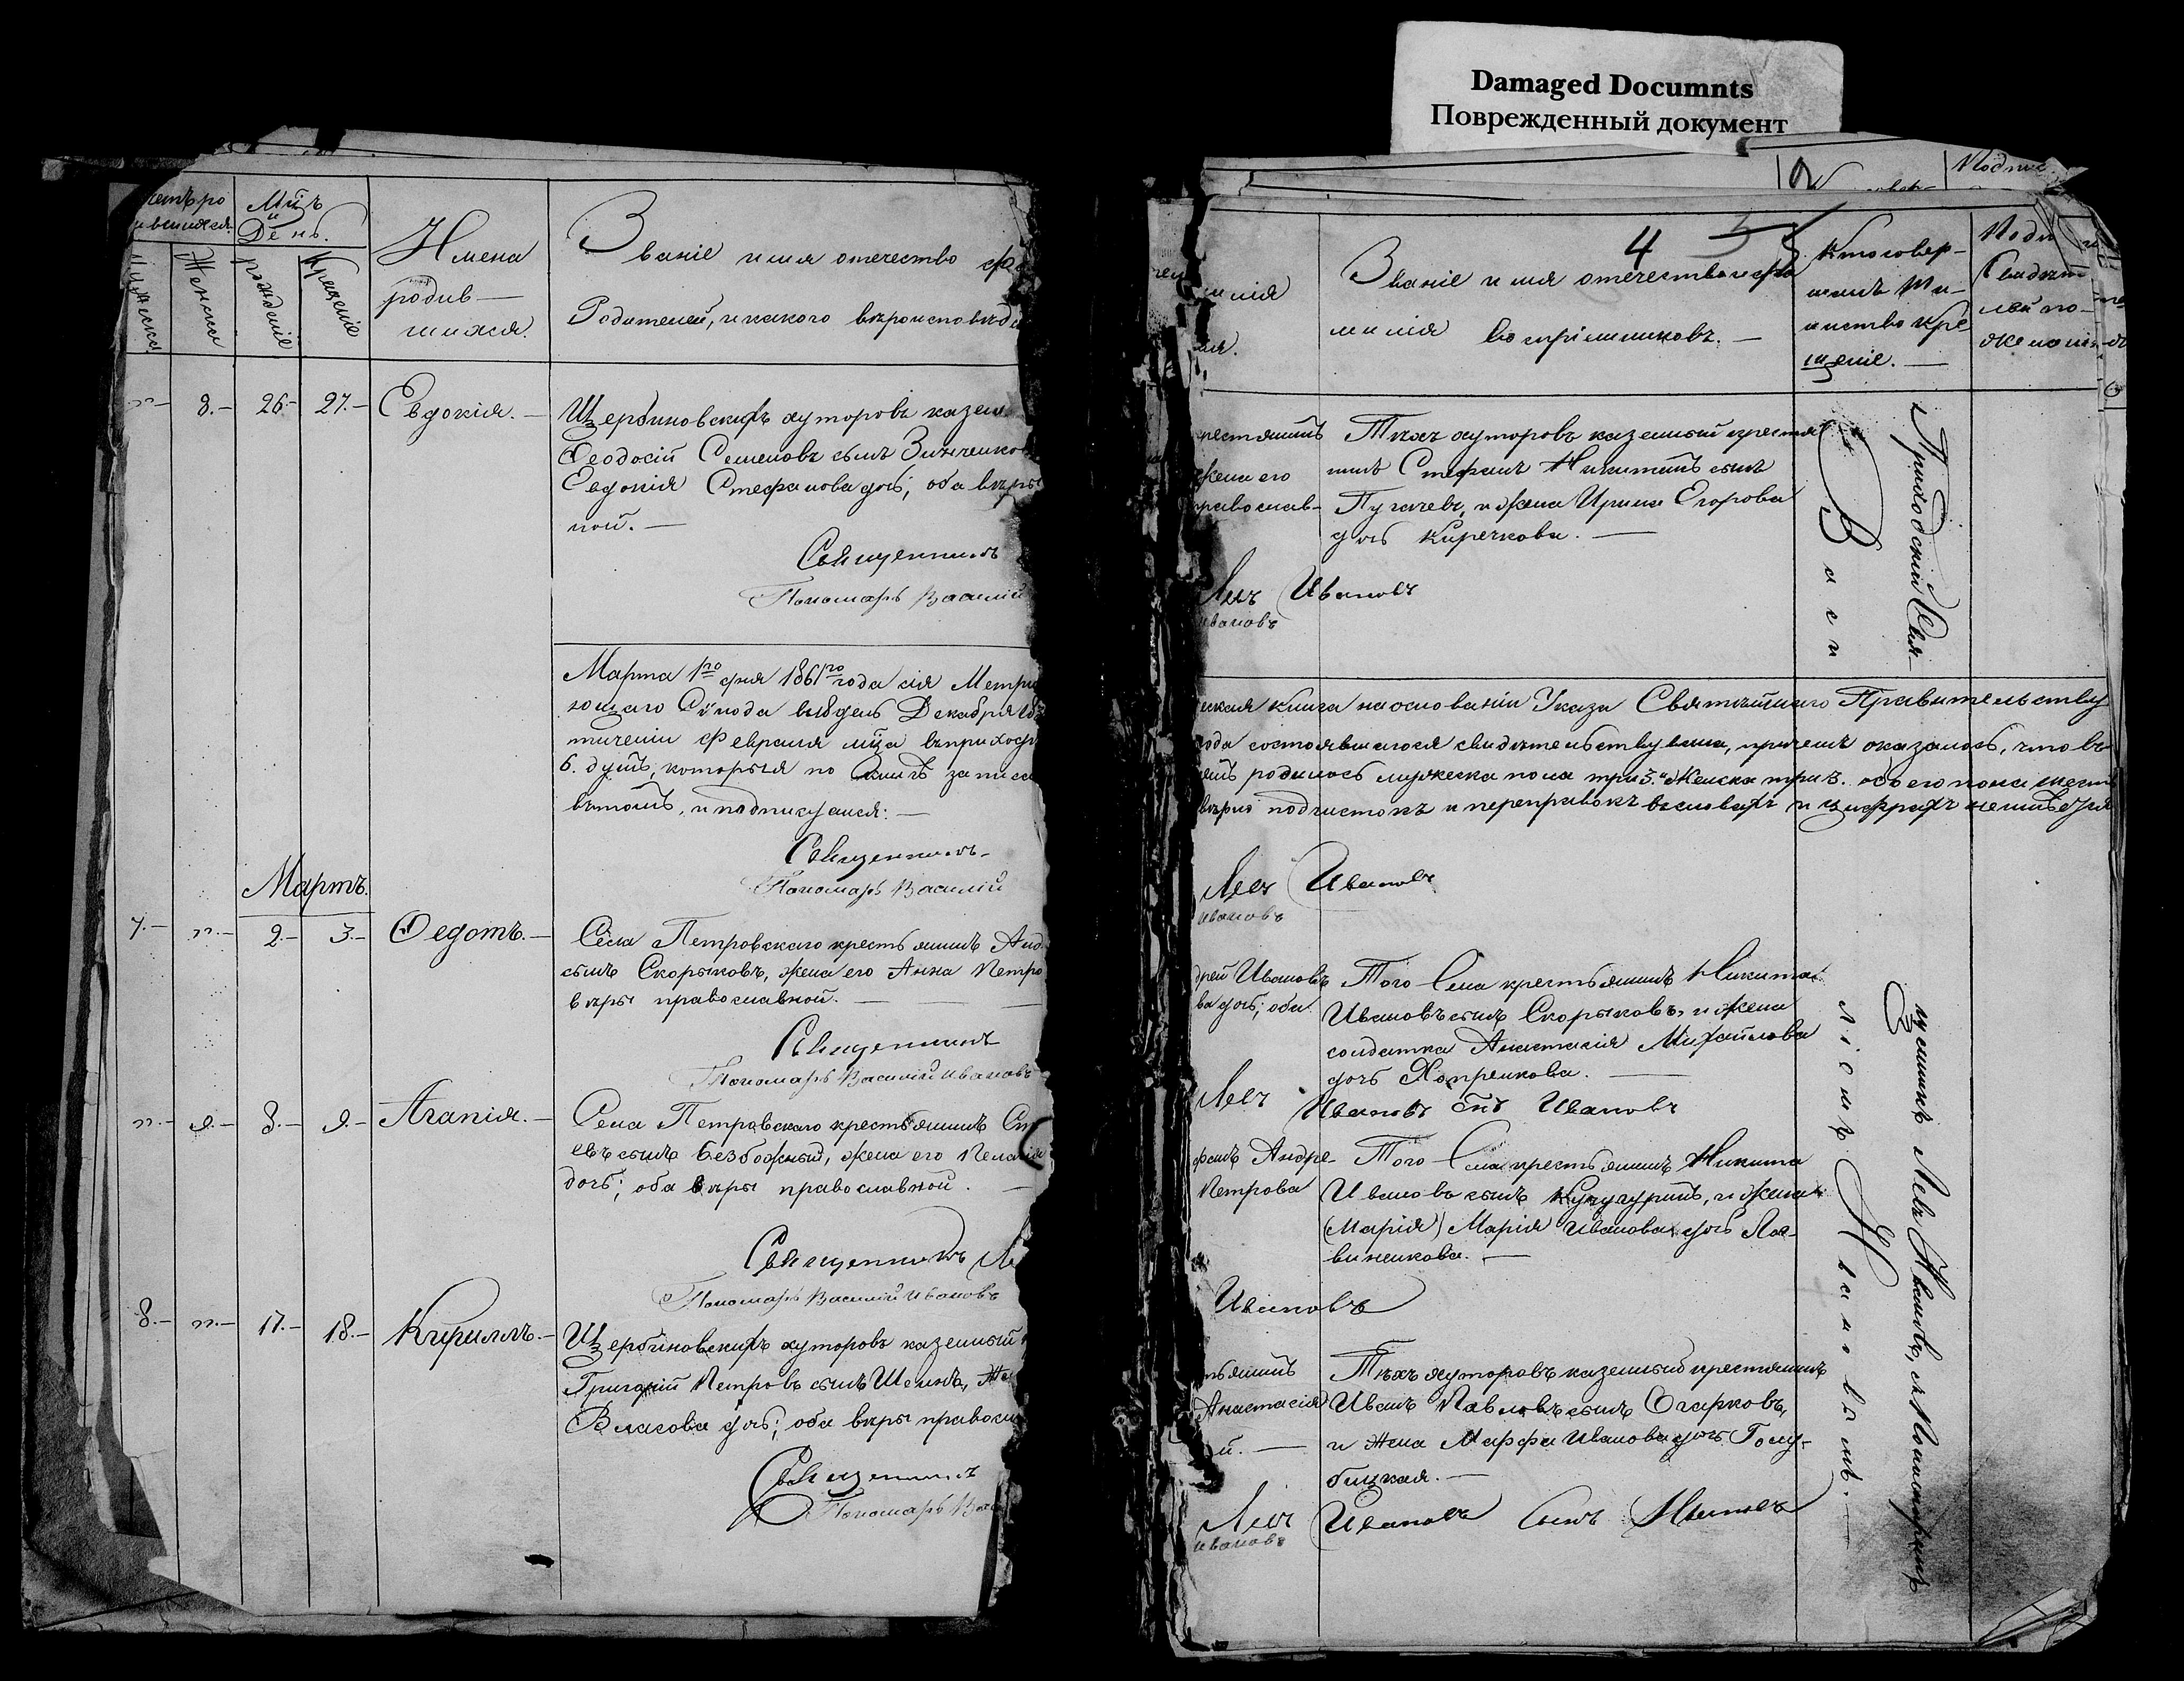 Damaged Documnts
Поврежденный документ
Мцъ
и
День.
Имена
родив-
шихся.
Званіе имя отечество
Родителей, и какого вѣроисповѣд
Женска
рожденіе
Крещеніе
8.- 26- 27.- Евдокія.
Щербиновскихъ хуторовъ казен
Ѳеодосій Семеновъ сынъ Зинченков
Евдокія Стефанова дочь; оба вѣры
ной.
Священникъ
Пономарь Василій
Марта 1го дня 1861го года сія Метри
ющаго Сѵнода въ
теченіи Февраля мца въ приход
6. душъ, которыя по
въ томъ, и подписуемся:
Священникъ
Пономарь Василій
Мартъ.
7.- "- 2.- 3.- Ѳедотъ.
Села Петровскаго крестьянинъ Анд
сынъ Скорыковъ, жена его Анна Петро
вѣры православной.
Священникъ
Пономарь Василій Ивановъ
"- 9.- 8.- 9.- Агапія.
Села Петровскаго крестьянинъ Ст
евъ сынъ Безбожный, жена его Пелагія
дочь; оба вѣры православной.
Священникъ Ле
Пономарь Василій Ивановъ
8.- "- 17.- 18.- Кириллъ.
Щербиновскихъ хуторовъ казенный
Григорій Петровъ сынъ Шеинъ, же
Власова дочь; оба вѣры правосл
Священникъ
Пономарь Вас
4
Званіе имя отечество и фа
милія воспріемниковъ.
Кто совер-
шилъ та-
инство кре
щеніе.
рестянинъ
жена его
православ-
Тѣхъ хуторовъ казенный крестья
нинъ Стефанъ Никитинъ сынъ
Пугачевъ, и жена Ирина Егорова
дочь Киречкова.
Левъ Ивановъ
Ивановъ
ская книга на основаніи Указа Святѣйшаго Правительству
года состоявшагося свидѣтельствувана, причемъ оказалось, что въ
родилось мужеска пола три 3. Женска три 3. обоего пола шесть
вѣрно подчистокъ и переправокъ въ словахъ и цифрахъ
Левъ Ивановъ
Ивановъ
дрей Ивановъ
ва дочь; оба
Того Села крестьянинъ Никита
Ивановъ сынъ Скорыковъ, и жена
солдатка Анастасія Михайлова
дочь Хопренкова.
Левъ Ивановъ Ивановъ
фанъ Андре-
Петрова
Того Села крестьянинъ Никита
Ивановъ сынъ Кучугуринъ, и жена
(Марія) Марія Иванова дочь Лог-
виненкова.
Ивановъ
тьянинъ
Анастасія
й.
Тѣхъ хуторовъ казенный крестянинъ
Иванъ Павловъ сынъ Огарковъ,
и жена Марфа Иванова дочь Голу-
бицкая.
Левъ Ивановъ сынъ Ивановъ
Ивановъ
Приходскій Свя-
щенникъ Левъ Ивановъ, съ Пономаремъ
Васи
ліемъ Ивановымъ.